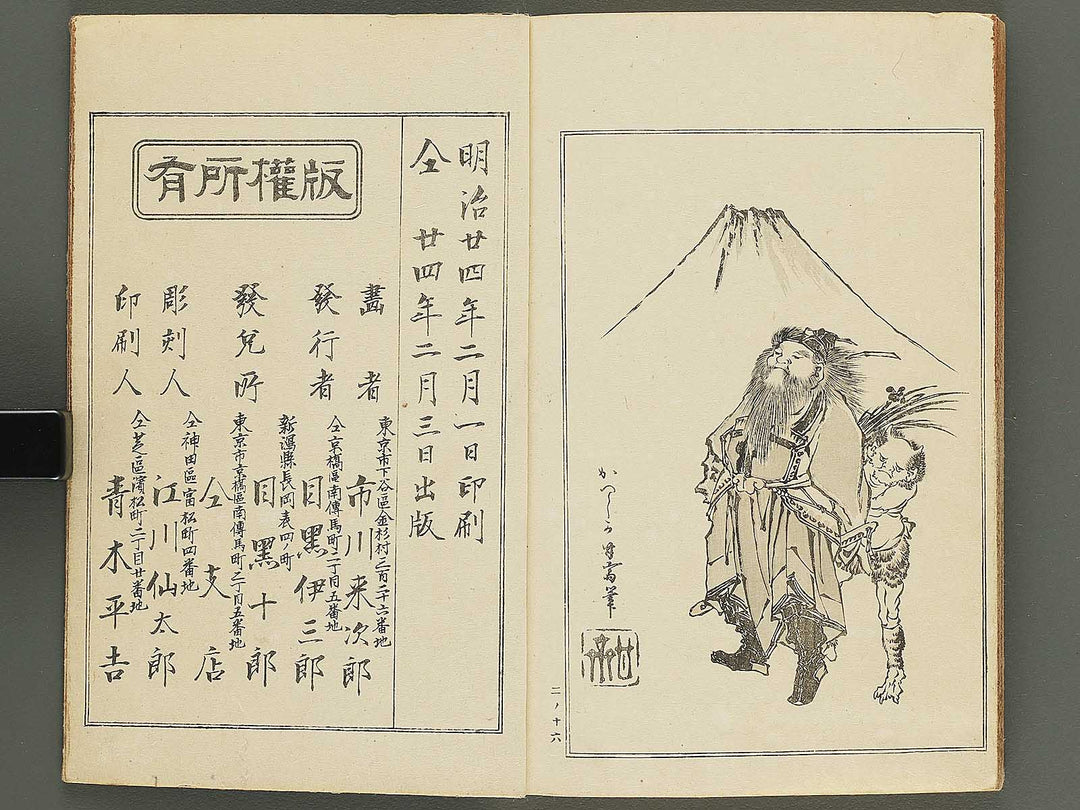 かつしか為斎筆
二ノ十六
明治廿四年二月一日印刷
仝　廿四年二月三日出版
版權所有
東京市下谷區金杉村三百二十六番地
畫者　市川来次郎
仝京橋區南傳馬町二丁目五番地
發行者　目黑伊三郎
新潟縣長岡表四ノ町
目黑十郎
東京市京橋區南傳馬町二丁目五番地
發兌所　仝支店
仝神田區富松町四番地
彫刻人　江川仙太郎
仝芝區濱松町二丁目廿番地
印刷人　青木平吉